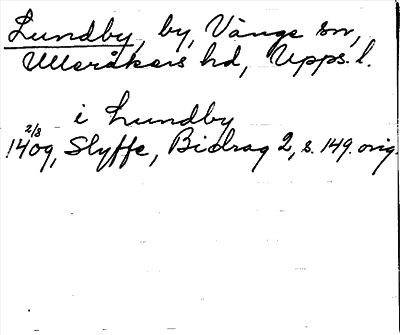 Lundby, by, Vänge sn,
Ulleråkers hd, Upps. l.
i Lundby
2/8
1409, Styffe, Bidrag 2, s. 149. orig.